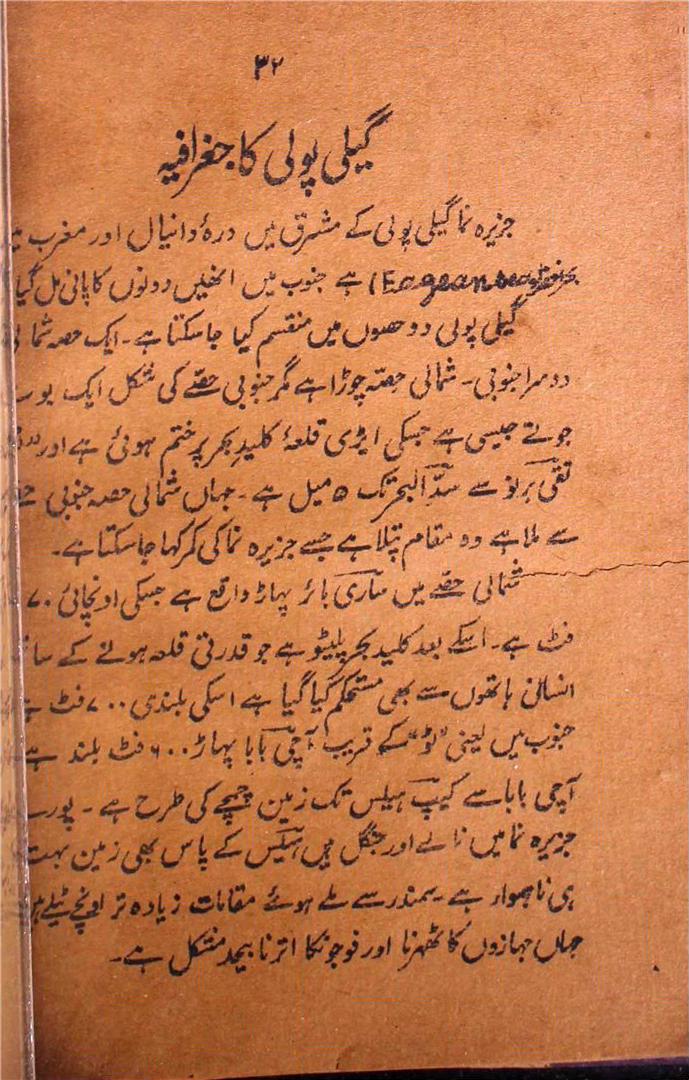 ۳۲
گیلی پولی کا جغرافیہ
جزیرہ نما گیلی پولی کے مشرق میں درۂ دانیال اور مغرب میں
(Eageansea) ہے جنوب میں انھیں دونوں کا پانی مل گیا
گیلی پولی دو حصوں میں منقسم کیا جاسکتا ہے۔ ایک حصہ شمالی
دوسرا جنوبی۔ شمالی حصّہ چوڑا ہے مگر جنوبی حصّے کی شکل ایک بوٹ
جوتے جیسی ہے جسکی ایڑی قلعۂ کلیدِ بحر پر ختم ہوئی ہے اور
سے سدّ البحر تک ۵ میل ہے۔ جہاں شمالی حصہ جنوبی
سے ملا ہے وہ مقام پتلا ہے جسے جزیرہ نما کی کمر کہا جاسکتا ہے۔
شمالی حصّے میں ساری بائر پہاڑ واقع ہے جسکی اونچائی
فٹ ہے۔ اسکے بعد کلید بحر پلیٹو ہے جو قدرتی قلعہ ہونے کے
انسانی ہاتھوں سے بھی مستحکم کیا گیا ہے اسکی بلندی ۷۰۰ فٹ
جنوب میں یعنی کے قریب آچی بابا پہاڑ ۶۰۰ فٹ بلند ہے
آچی بابا سے کیپ ہیلس تک زمین چمچے کی طرح ہے۔ پورے
جزیرہ نما میں نالے اور جنگل ہیں ہیلیس کے پاس بھی زمین بہت
ہی ناہموار ہے۔ سمندر سے ملے ہوئے مقامات زیادہ تر اونچے ٹیلے ہیں
جہاں جہازوں کا ٹھہرنا اور فوجونکا اترنا بیحد مشکل ہے۔